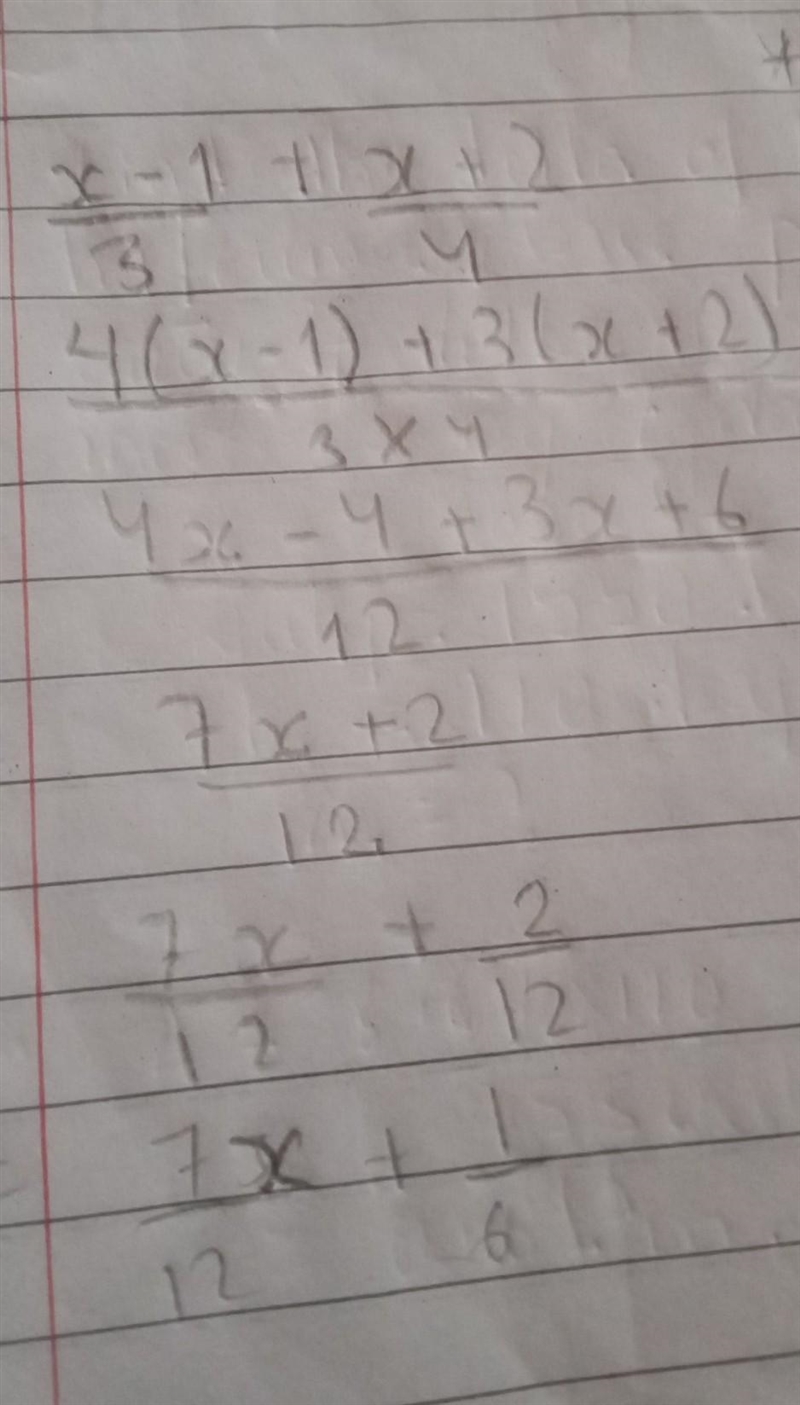 x - 1 + x + 2
3 4
4(x - 1) + 3(x + 2)
3 × 4
4x - 4 + 3x + 6
12
7x + 2
12
7x + 2
12 12
7x + 1
12 6